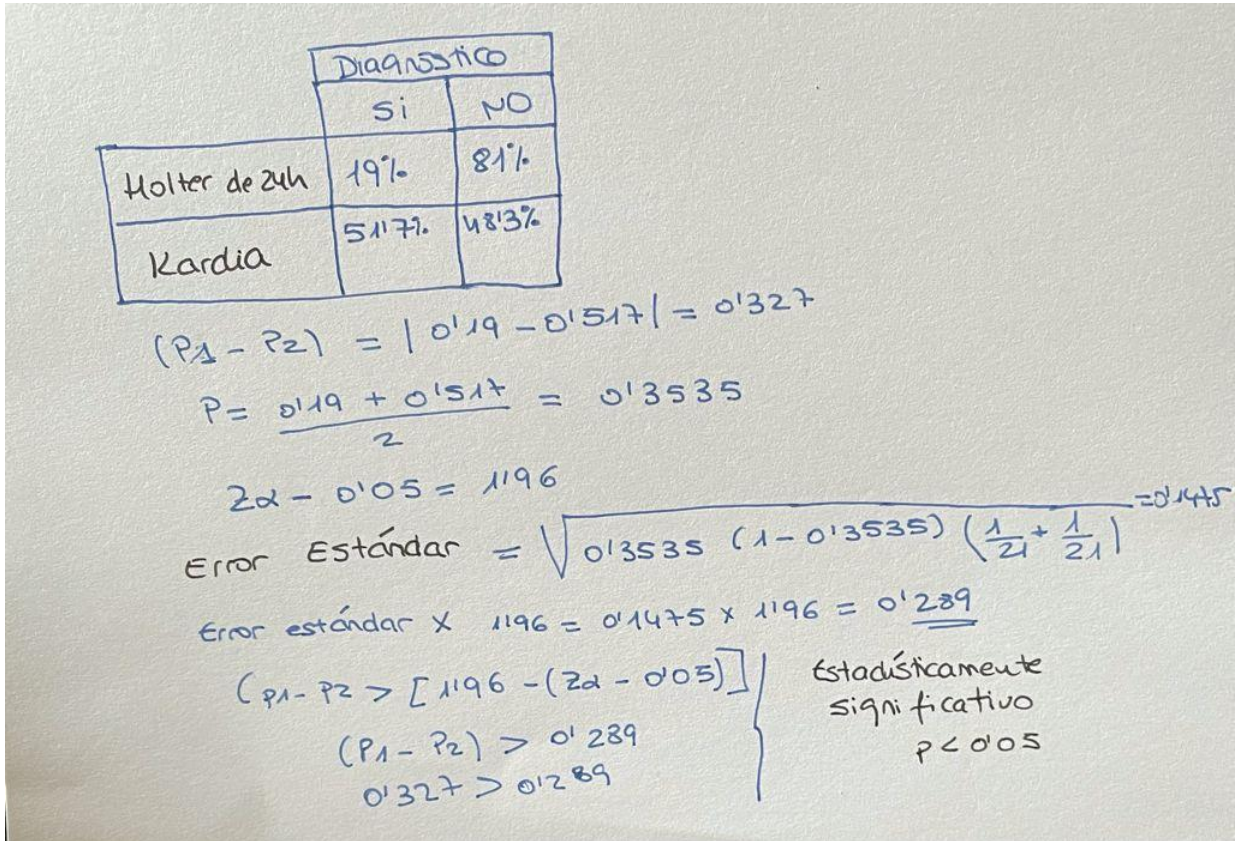 Diagnóstico
Si NO
Holter de 24h 19% 81%
Kardia 51'7% 48'3%
(P1 - P2) = | 0'19 - 0'517 | = 0'327
P = 0'19 + 0'517 / 2 = 0'3535
Zα - 0'05 = 1'96
Error Estándar = √ 0'3535 (1 - 0'3535) (1/21 + 1/21) = 0'1475
Error estándar x 1'96 = 0'1475 x 1'96 = 0'289
(p1 - p2 > [1'96 - (Zα - 0'05)]
(P1 - P2) > 0'289
0'327 > 0'289
Estadísticamente
significativo
p < 0'05